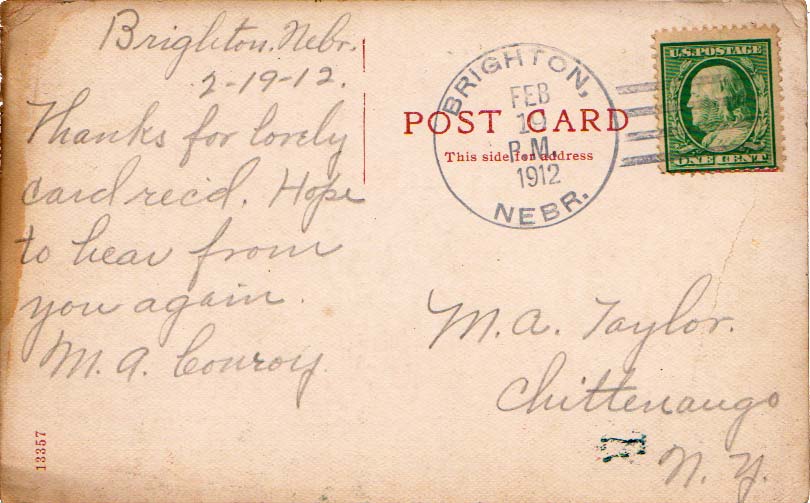 Brighton, Nebr.
2-19-12.
Thanks for lovely
card rec'd. Hope
to hear from
you again.
M. A. Conroy
13357
POST CARD
This side for address
BRIGHTON,
FEB
19
P.M.
1912
NEBR.
U.S. POSTAGE
ONE CENT
M. A. Taylor.
Chittenango
N. Y.